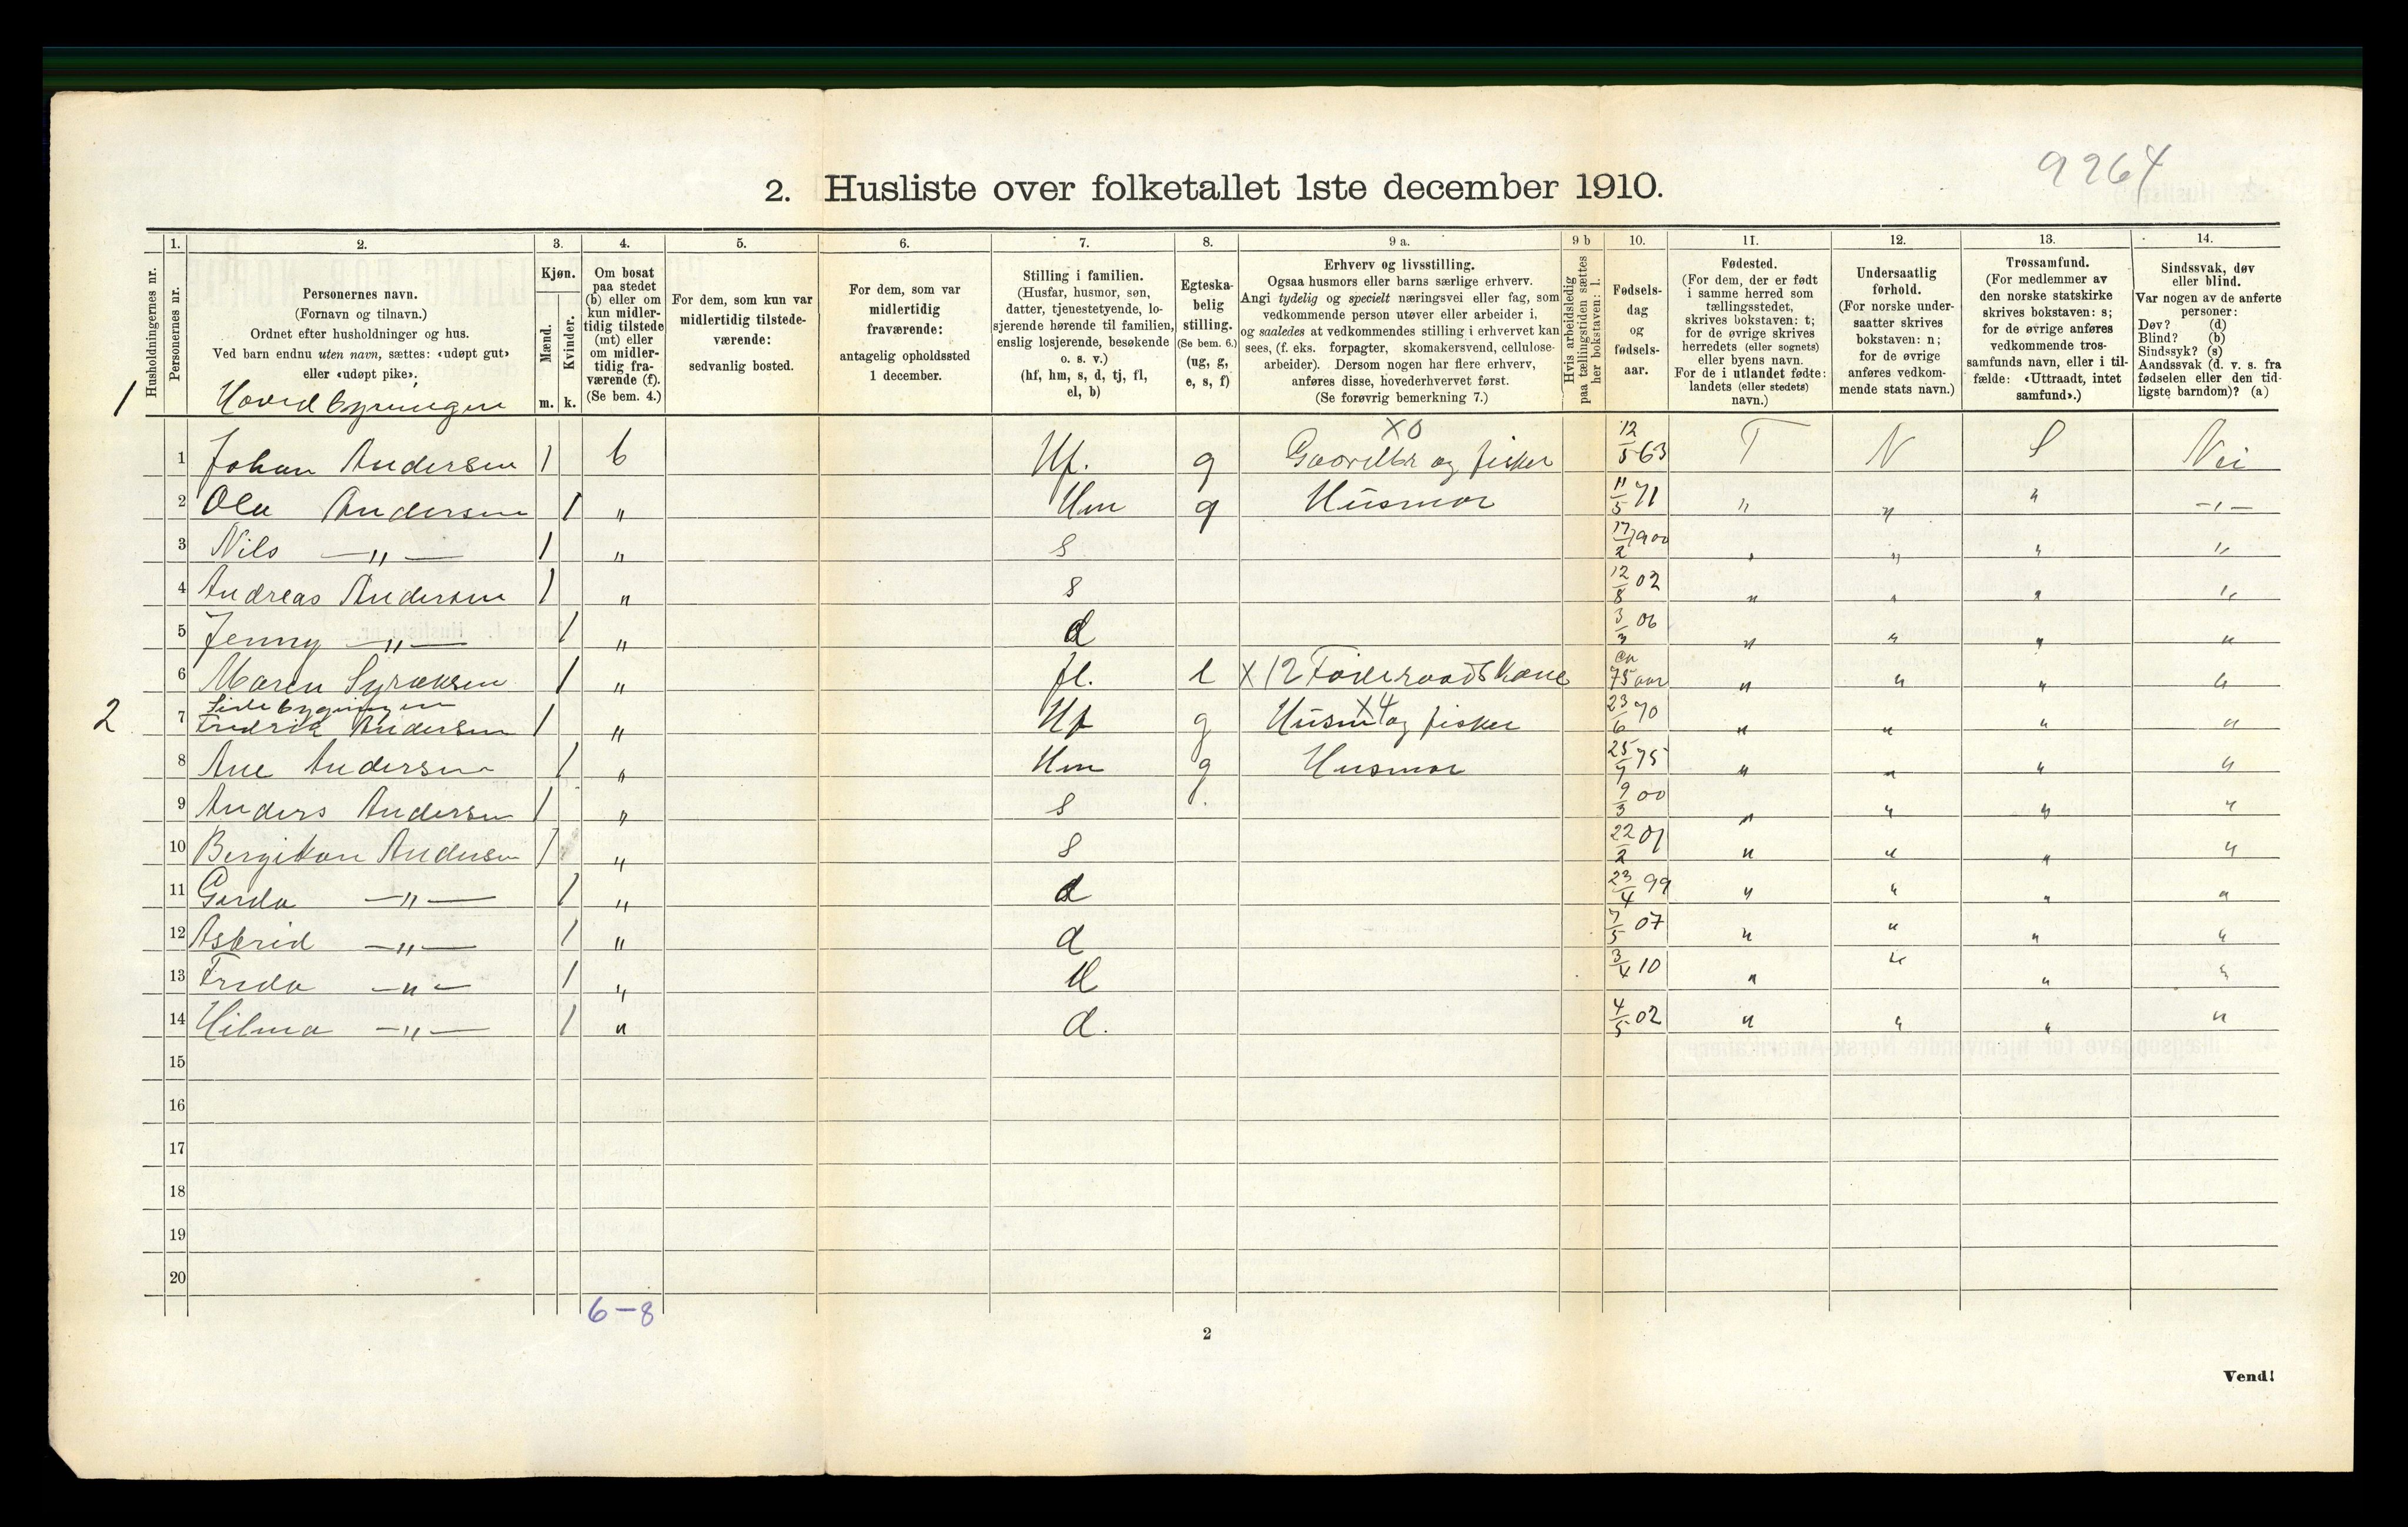 9264
2. Husliste over folketallet 1ste december 1910.
1. 2. 3. 4. 5. 6. 7. 8. 9 a. 9 b 10. 11. 12. 13. 14.
Husholdningernes nr.
Personernes nr.
Personernes navn.
(Fornavn og tilnavn.)
Ordnet efter husholdninger og hus.
Ved barn endnu uten navn, sættes: «udøpt gut»
eller «udøpt pike».
Kjøn.
Mænd.
Kvinder.
m. k.
Om bosat
paa stedet
(b) eller om
kun midler-
tidig tilstede
(mt) eller
om midler-
tidig fra-
værende (f).
(Se bem. 4.)
For dem, som kun var
midlertidig tilstede-
værende:
sedvanlig bosted.
For dem, som var
midlertidig
fraværende:
antagelig opholdssted
1 december.
Stilling i familien.
(Husfar, husmor, søn,
datter, tjenestetyende, lo-
sjerende hørende til familien,
enslig losjerende, besøkende
o. s. v.)
(hf, hm, s, d, tj, fl,
el, b)
Egteska-
belig
stilling.
(Se bem. 6.)
(ug, g,
e, s, f)
Erhverv og livsstilling.
Ogsaa husmors eller barns særlige erhverv.
Angi tydelig og specielt næringsvei eller fag, som
vedkommende person utøver eller arbeider i,
og saaledes at vedkommendes stilling i erhvervet kan
sees, (f. eks. forpagter, skomakersvend, cellulose-
arbeider). Dersom nogen har flere erhverv,
anføres disse, hovederhvervet først.
(Se forøvrig bemerkning 7.)
Hvis arbeidsledig
paa tællingstiden sættes
her bokstaven: l.
Fødsels-
dag
og
fødsels-
aar.
Fødested.
(For dem, der er født
i samme herred som
tællingsstedet,
skrives bokstaven: t;
for de øvrige skrives
herredets (eller sognets)
eller byens navn.
For de i utlandet fødte:
landets (eller stedets)
navn.)
Undersaatlig
forhold.
(For norske under-
saatter skrives
bokstaven: n;
for de øvrige
anføres vedkom-
mende stats navn.)
Trossamfund.
(For medlemmer av
den norske statskirke
skrives bokstaven: s;
for de øvrige anføres
vedkommende tros-
samfunds navn, eller i til-
fælde: «Uttraadt, intet
samfund».)
Sindssvak, døv
eller blind.
Var nogen av de anførte
personer:
Døv? (d)
Blind? (b)
Sindssyk? (s)
Aandssvak (d. v. s. fra
fødselen eller den tid-
ligste barndom)? (a)
1 Hovedbygningen
1 Johan Andersen 1 b Hf. g X0 og fisker 12/5 63 T N S Nei
2 Andersen 1 " Hm g Husmor 11/5 71 " " " -"-
3 Nils -"- 1 " s 17/2 1900 " " " "
4 Andreas Andersen 1 " s 12/8 02 " " " "
5 Jenny -"- 1 " d 3/3 06 " " " "
6 Maren 1 " fl. e X12 Føderaadskone ca 75 aar " " " "
2 Sidebygningen
7 Fredrik Andersen 1 " Hf g X4 Husm og fisker 23/6 70 " " " "
8 Ane Andersen 1 " Hm g Husmor 25/7 75 " " " "
9 Anders Andersen 1 " s g. 9/3 00 " " " "
10 Andersen 1 " s 22/2 01 " " " "
11 Gerda -"- 1 " d 23/4 99 " " " "
12 Astrid -"- 1 " d 7/5 07 " " " "
13 Frida -"- 1 " d 3/4 10 " " " "
14 Hilma -"- 1 " d. 4/5 02 " " " "
15
16
17
18
19
20
6-8
2
Vend!